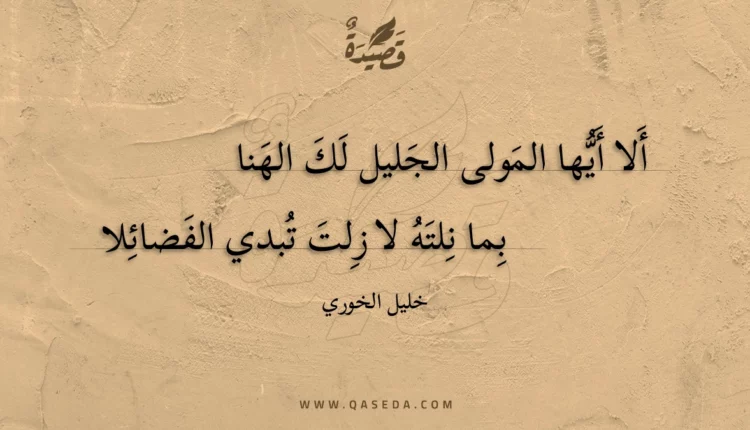 قَصِيدَةٌ
أَلا أَيُّها المَولى الجَليل لَكَ الهَنا
بِما نِلتَهُ لا زِلتَ تُبدي الفَضائِلا
خليل الخوري
WWW.QASEDA.COM